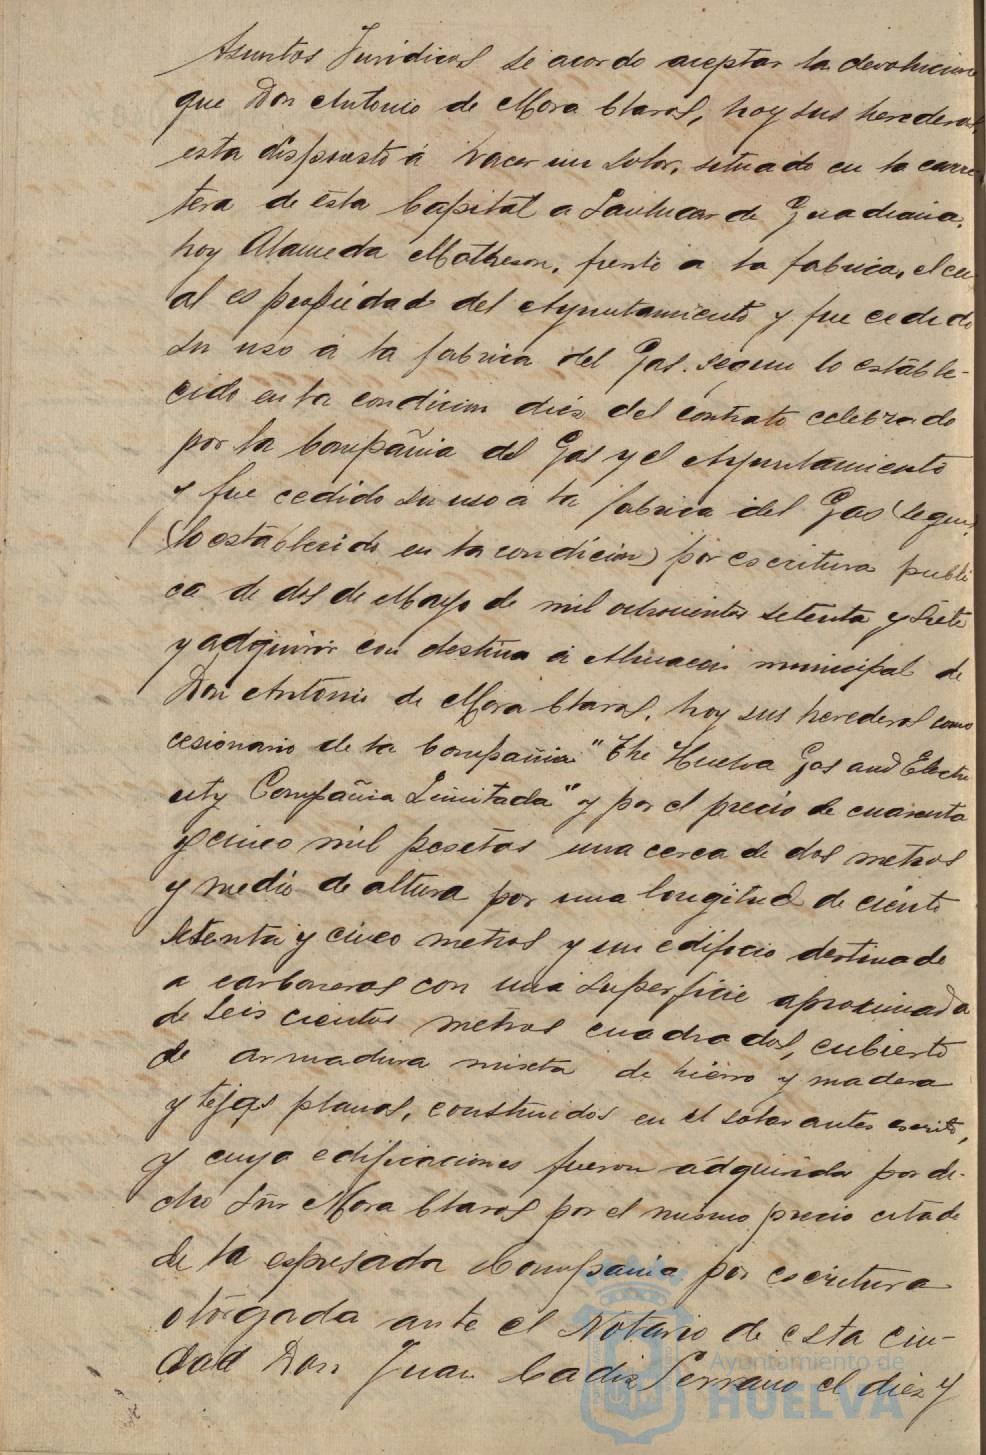 Asuntos Juridicos se acordo aceptar la devolucion
que Don Antonio de Mora Claros, hoy sus herederos
esta dispuesto á hacer un solar, situado en la carre
tera de ésta Capital a Sanlucar de Guadiana,
hoy Alameda Matheson, frente a la fabrica, el cu
al es propiedad del Ayuntamiento y fue cedido
su uso á la fabrica del Gas. segun lo estable-
cido en la condicion diéz del contrato celebrado
por la Compañia del Gas y el Ayuntamiento
y fue cedido su uso a la fabrica del Gas (segun
(lo establecido en la condicion) por escritura publi
ca de dos de Mayo de mil ochocientos setenta y siete
y adquirir con destino á Almacén municipal de
Don Antonio de Mora Claros, hoy sus herederos como
cesionario de la Compañia "The Huelva Gas and Electri
city Compañia Limitada" y por el precio de cuarenta
y cinco mil pesetas una cerca de dos metros
y medio de altura por una longitud de ciento
setenta y cinco metros y un edificio destinado
a carboneras con una superficie aproximada
de seis cientos metros cuadrados, cubierto
de armadura mixta de hierro y madera
y tejas planas, construidos en el solar antes escrito,
y cuya edificaciones fueron adquirida por di-
cho Sñr Mora Claros por el mismo precio citado
de la espresada Compania por escritura
otorgada ante el Notario de esta ciu-
dad Don Juan Cadiz Serrano el diez y
Ayuntamiento de
HUELVA